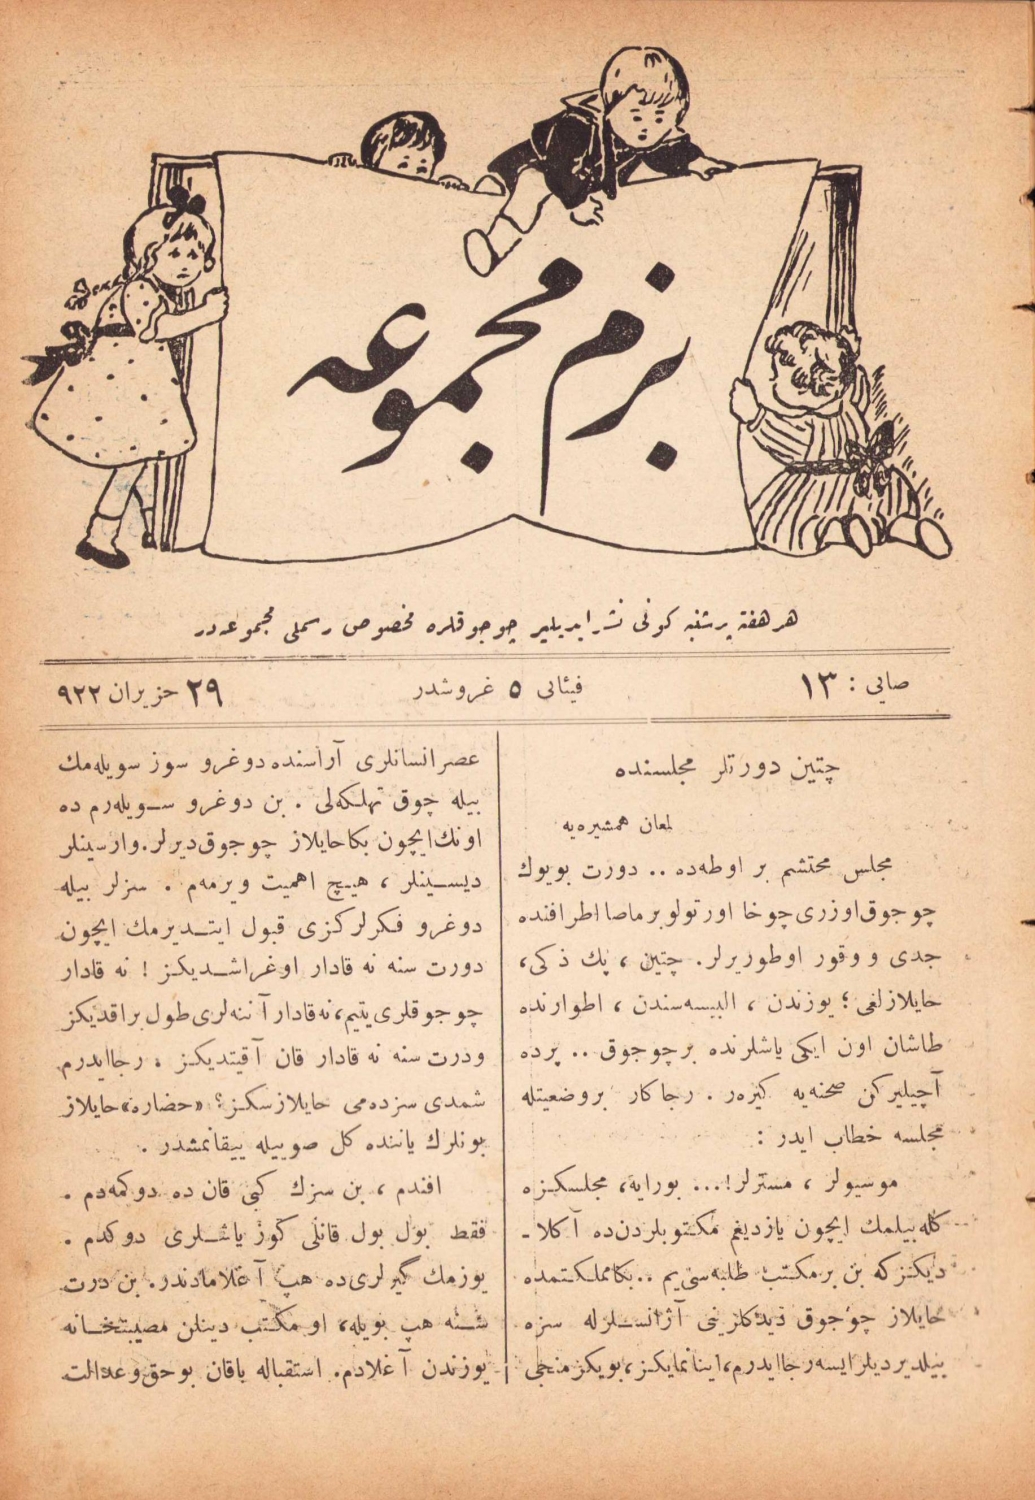 بزم مجموعه
هر هفته پرشنبه كونى نشر ايديلير چوجوقلره مخصوص رسملى مجموعه در
صايى : ١٣
فيئاتى ٥ غروشدر
٢٩ حزيران ٩٢٢
چتين دورتلر مجلسنده
لمعان همشيره‌يه
مجلس محتشم بر اوطه‌ده .. دورت بويوك
چوجوق اوزرى چوخا اورتولو بر ماصا اطرافنده
جدى و وقور اوطوريرلر. چتين ، پك ذكى،
حايلازلغى ؛ يوزندن ، البيسه‌سندن ، اطوارنده
طاشان اون ايكى ياشلرنده بر چوجوق .. پرده
آچيليركن صحنه‌يه كيره‌ر . رجاكار بر وضعيتله
مجلسه خطاب ايدر :
موسيولر ، مسترلر!... بورايه، مجلسكزه
كله‌بيلمك ايچون يازديغم مكتوبلردن‌ده آكلا-
ديكزكه بن بر مكتب طلبه‌سى‌يم .. بكا مملكتمده
حايلاز چوجوق ديدكلرينى آژانسلرله سزه
بيلديرديلر ايسه رجا ايدرم، اينانمايكز، بو يكزمنجى
عصر انسانلرى آراسنده دوغرو سوز سويله‌مك
بيله چوق تهلكه‌لى . بن دوغرو سويله‌رم ده
اونك ايچون بكا حايلاز چوجوق ديرلر. وارسينلر
ديسينلر ، هيچ اهميت ويرمه‌م . سزلر بيله
دوغرو فكرلركزى قبول ايتديرمك ايچون
دورت سنه نه قادار اوغراشديكز ! نه قادار
چوجوقلرى يتيم، نه قادار آننه‌لرى طول براقديكز
ودرت سنه نه قادار قان آقيتديكز . رجا ايدرم
شمدى سزده‌مى حايلازسكز؟ «حضاره» حايلاز
بونلرك ياننده كل صوييله ييقانمشدر .
افندم ، بن سزك كبى قان ده دوكمه‌دم .
فقط بول بول قانلى كوز ياشلرى دوكدم .
يوزمك گيرلرى‌ده هپ آغلامادندر. بن درت
سنه هپ بويله، او مكتب دينلن مصيبتخانه
يوزندن آغلادم. استقباله باقان بو حق و عدالت